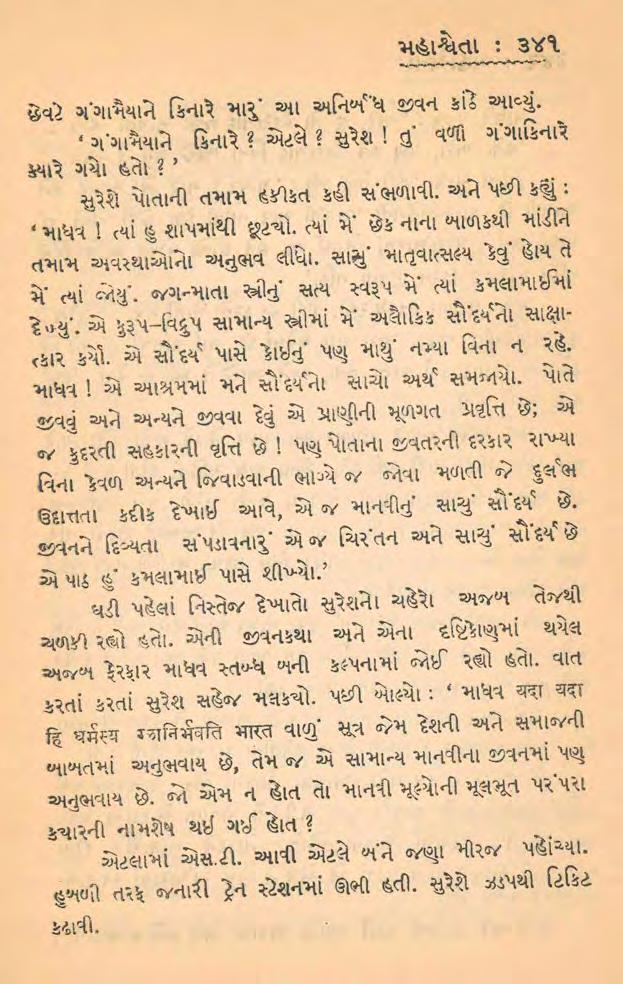 મહાશ્વેતા : ૩૪૧
છેવટે ગંગામૈયાને કિનારે મારું આ અનિર્બંધ જીવન કાંઠે આવ્યું.
‘ ગંગામૈયાને કિનારે ? એટલે ? સુરેશ ! તું વળી ગંગાકિનારે
ક્યારે ગયો હતો ? ’
સુરેશે પોતાની તમામ હકીકત કહી સંભળાવી. અને પછી કહ્યું :
‘ માધવ ! ત્યાં હુ શાપમાંથી છૂટ્યો. ત્યાં મેં છેક નાના બાળકથી માંડીને
તમામ અવસ્થાઓનો અનુભવ લીધો. સાચું માતૃવાત્સલ્ય કેવું હોય તે
મેં ત્યાં જોયું. જગન્માતા સ્ત્રીનું સત્ય સ્વરૂપ મેં ત્યાં કમલામાઈમાં
દેખ્યું. એ કુરૂપ–વિદ્રુપ સામાન્ય સ્ત્રીમાં મેં અલૌકિક સૌંદર્યનો સાક્ષા-
ત્કાર કર્યો. એ સૌંદર્ય પાસે કોઈનું પણ માથું નમ્યા વિના ન રહે.
માધવ ! એ આશ્રમમાં મને સૌંદર્યનો સાચો અર્થ સમજાયો. પોતે
જીવવું અને અન્યને જીવવા દેવું એ પ્રાણીની મૂળગત પ્રવૃત્તિ છે; એ
જ કુદરતી સહકારની વૃત્તિ છે ! પણ પોતાના જીવતરની દરકાર રાખ્યા
વિના કેવળ અન્યને જિવાડવાની ભાગ્યે જ જોવા મળતી જે દુર્લભ
ઉદાત્તતા કદીક દેખાઈ આવે, એ જ માનવીનું સાચું સૌંદર્ય છે.
જીવનને દિવ્યતા સંપડાવનારું એ જ ચિરંતન અને સાચું સૌંદર્ય છે
એ પાઠ હું કમલામાઈ પાસે શીખ્યો.’
ઘડી પહેલાં નિસ્તેજ દેખાતો સુરેશનો ચહેરો અજબ તેજથી
ચળકી રહ્યો હતો. એની જીવનકથા અને એના દૃષ્ટિકોણમાં થયેલ
અજબ ફેરફાર માધવ સ્તબ્ધ બની કલ્પનામાં જોઈ રહ્યો હતો. વાત
કરતાં કરતાં સુરેશ સહેજ મલક્યો. પછી બોલ્યો : ‘ માધવ यदा यदा
हि धर्मस्य ग्लानिर्भवति भारत વાળું સૂત્ર જેમ દેશની અને સમાજની
બાબતમાં અનુભવાય છે, તેમ જ એ સામાન્ય માનવીના જીવનમાં પણ
અનુભવાય છે. જો એમ ન હોત તો માનવી મૂલ્યોની મૂલભૂત પરંપરા
ક્યારની નામશેષ થઈ ગઈ હોત ?
એટલામાં એસ.ટી. આવી એટલે બંને જણા મીરજ પહોંચ્યા.
હુબળી તરફ જનારી ટ્રેન સ્ટેશનમાં ઊભી હતી. સુરેશે ઝડપથી ટિકિટ
કઢાવી.